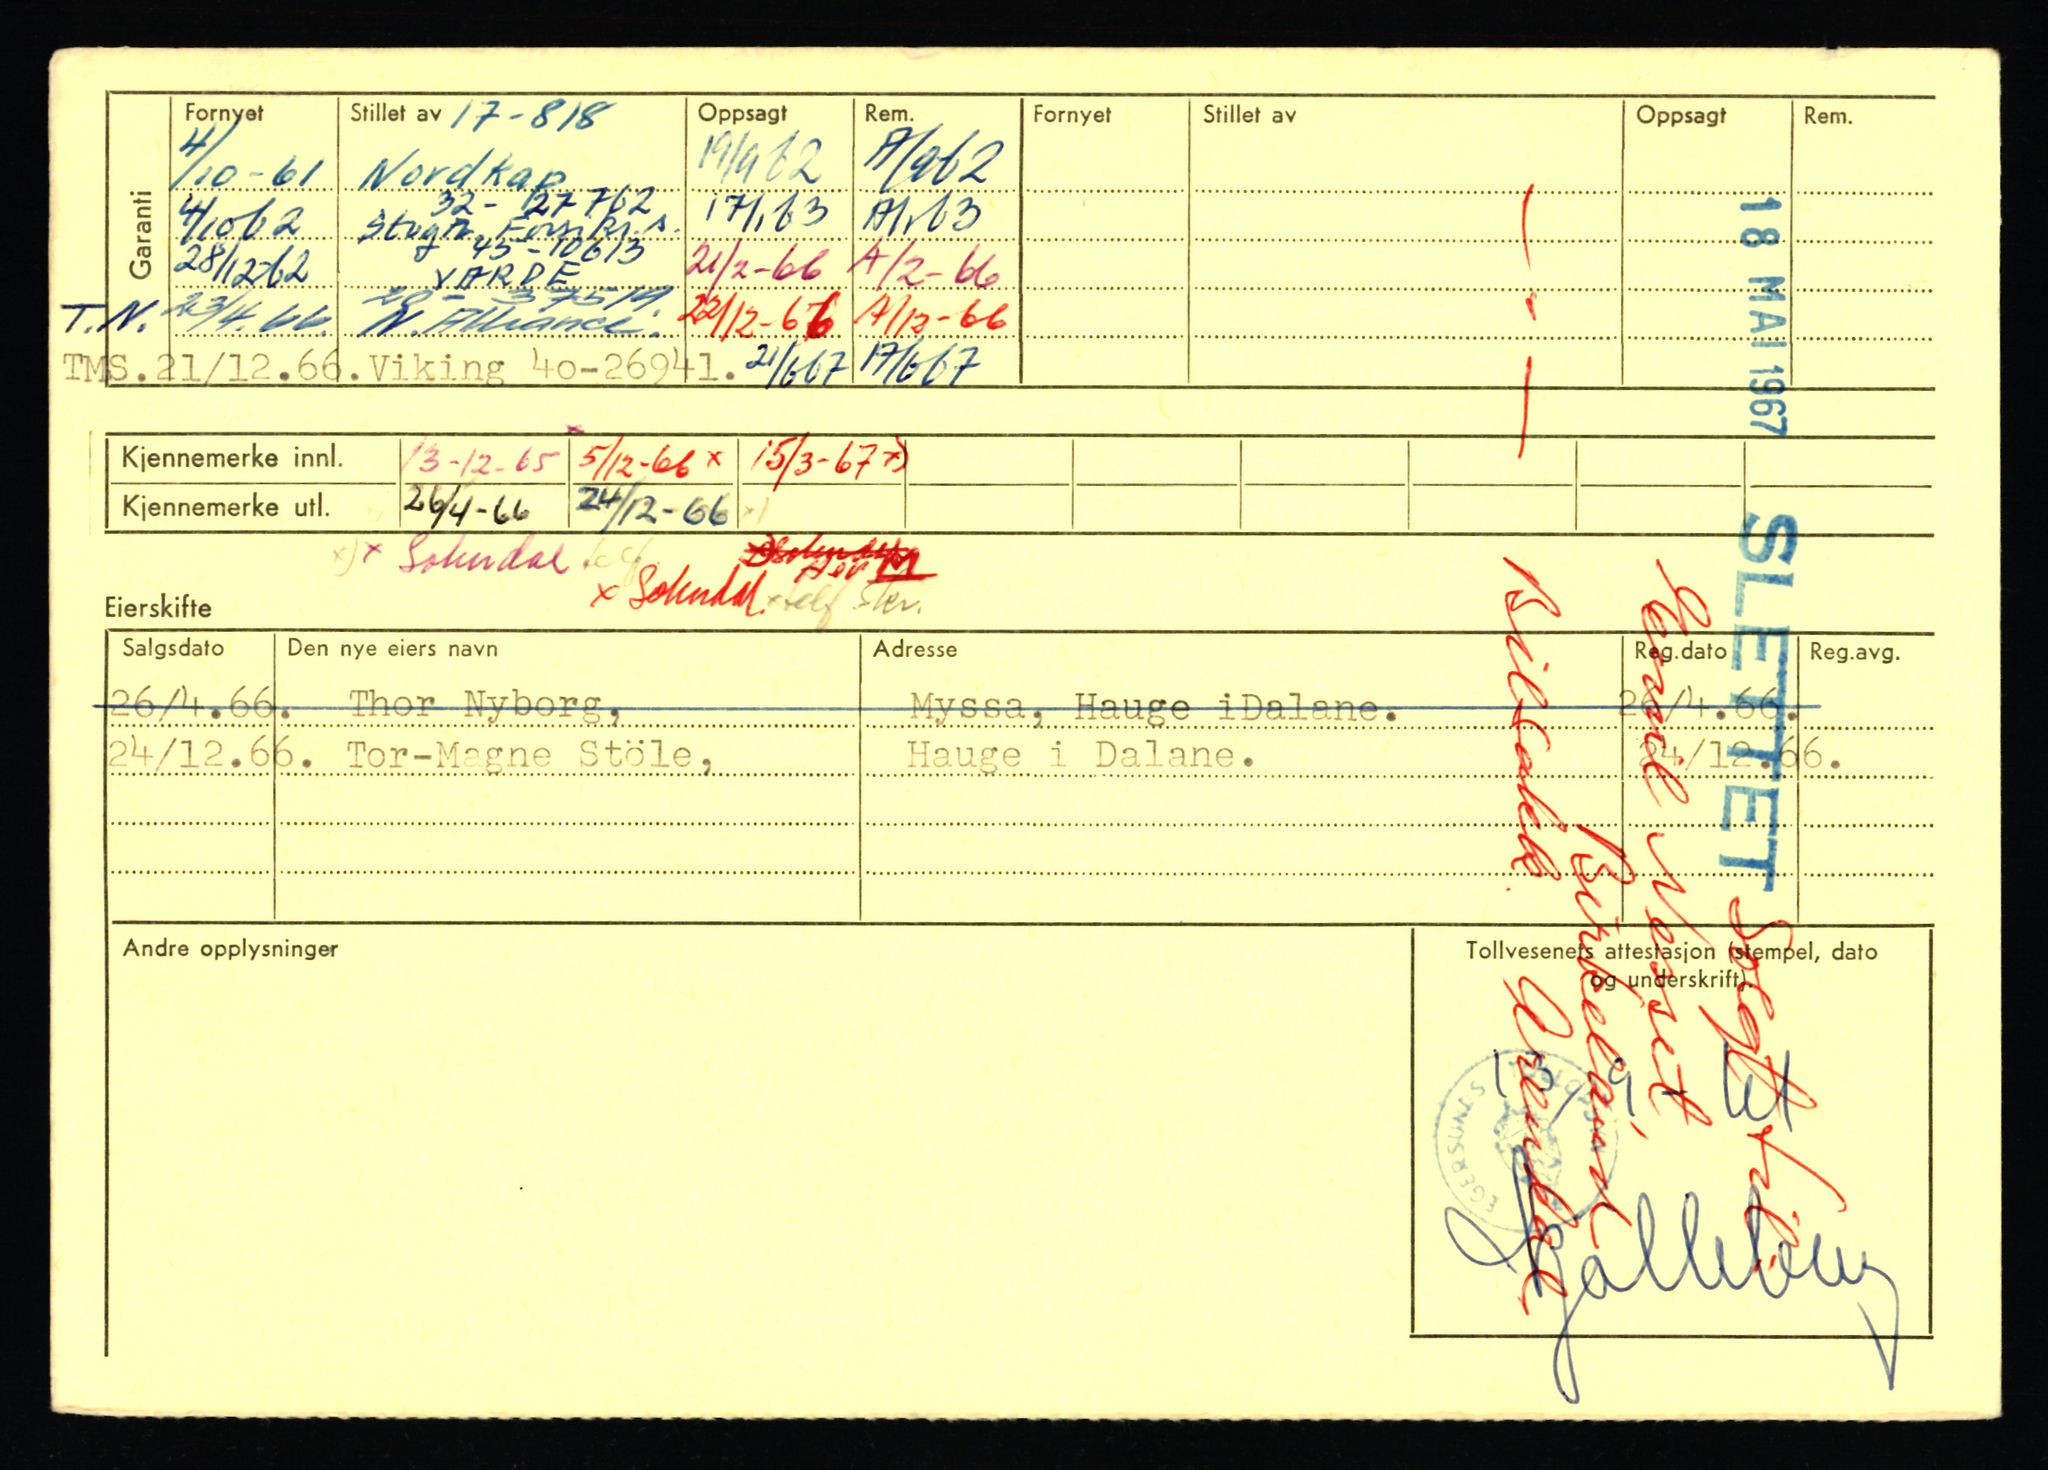 Garanti
Fornyet Stillet av 17-818 Oppsagt Rem. Fornyet Stillet av Oppsagt Rem.
4/10-61 Nordkap 19/9 62 A/9 62
32-127762
4/10 62 17/1 63 A/1 63
45-10613
28/12-62 VARDE 21/2-66 A/2-66
T.N. 23/4.66. N. Alliance. 22/12-66 A/12-66
TMS.21/12.66.Viking 4o-26941. 21/6 67 17/6 67
Kjennemerke innl. 13-12-65 5/12-66 x 15/3-67 x)
Kjennemerke utl. 26/4-66 24/12-66
x) x Sokndal
x Sokndal.
Eierskifte
Salgsdato Den nye eiers navn Adresse Reg.dato Reg.avg.
26/4.66. Thor Nyborg, Myssa, Hauge iDalane. 26/4.66.
24/12.66. Tor-Magne Stöle, Hauge i Dalane. 24/12.66.
Andre opplysninger
Tollvesenets attestasjon (stempel, dato
og underskrift)
EGERSUNDS
18 MAI 1967
SLETTET
Solgt til
Birkeland